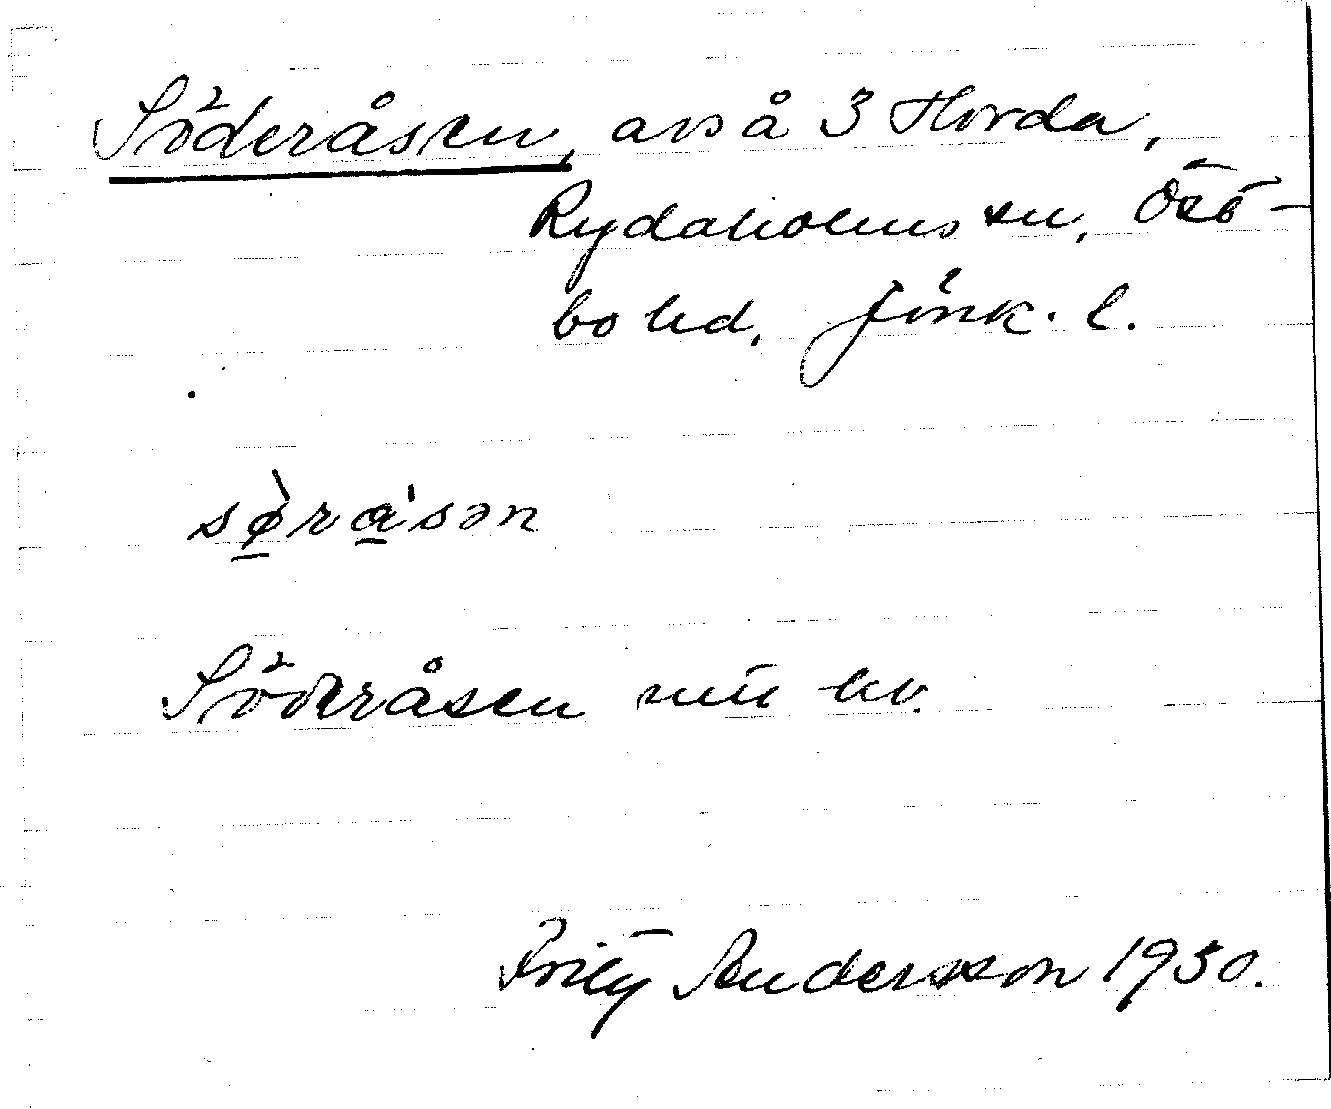 Söderåsen, avs å 3 Horda,
Rydaholms sn, Öst-
bo hd, Jönk. l.
sø̀rɑ'sən
Söderåsen nu bv.
Andersson 1930.